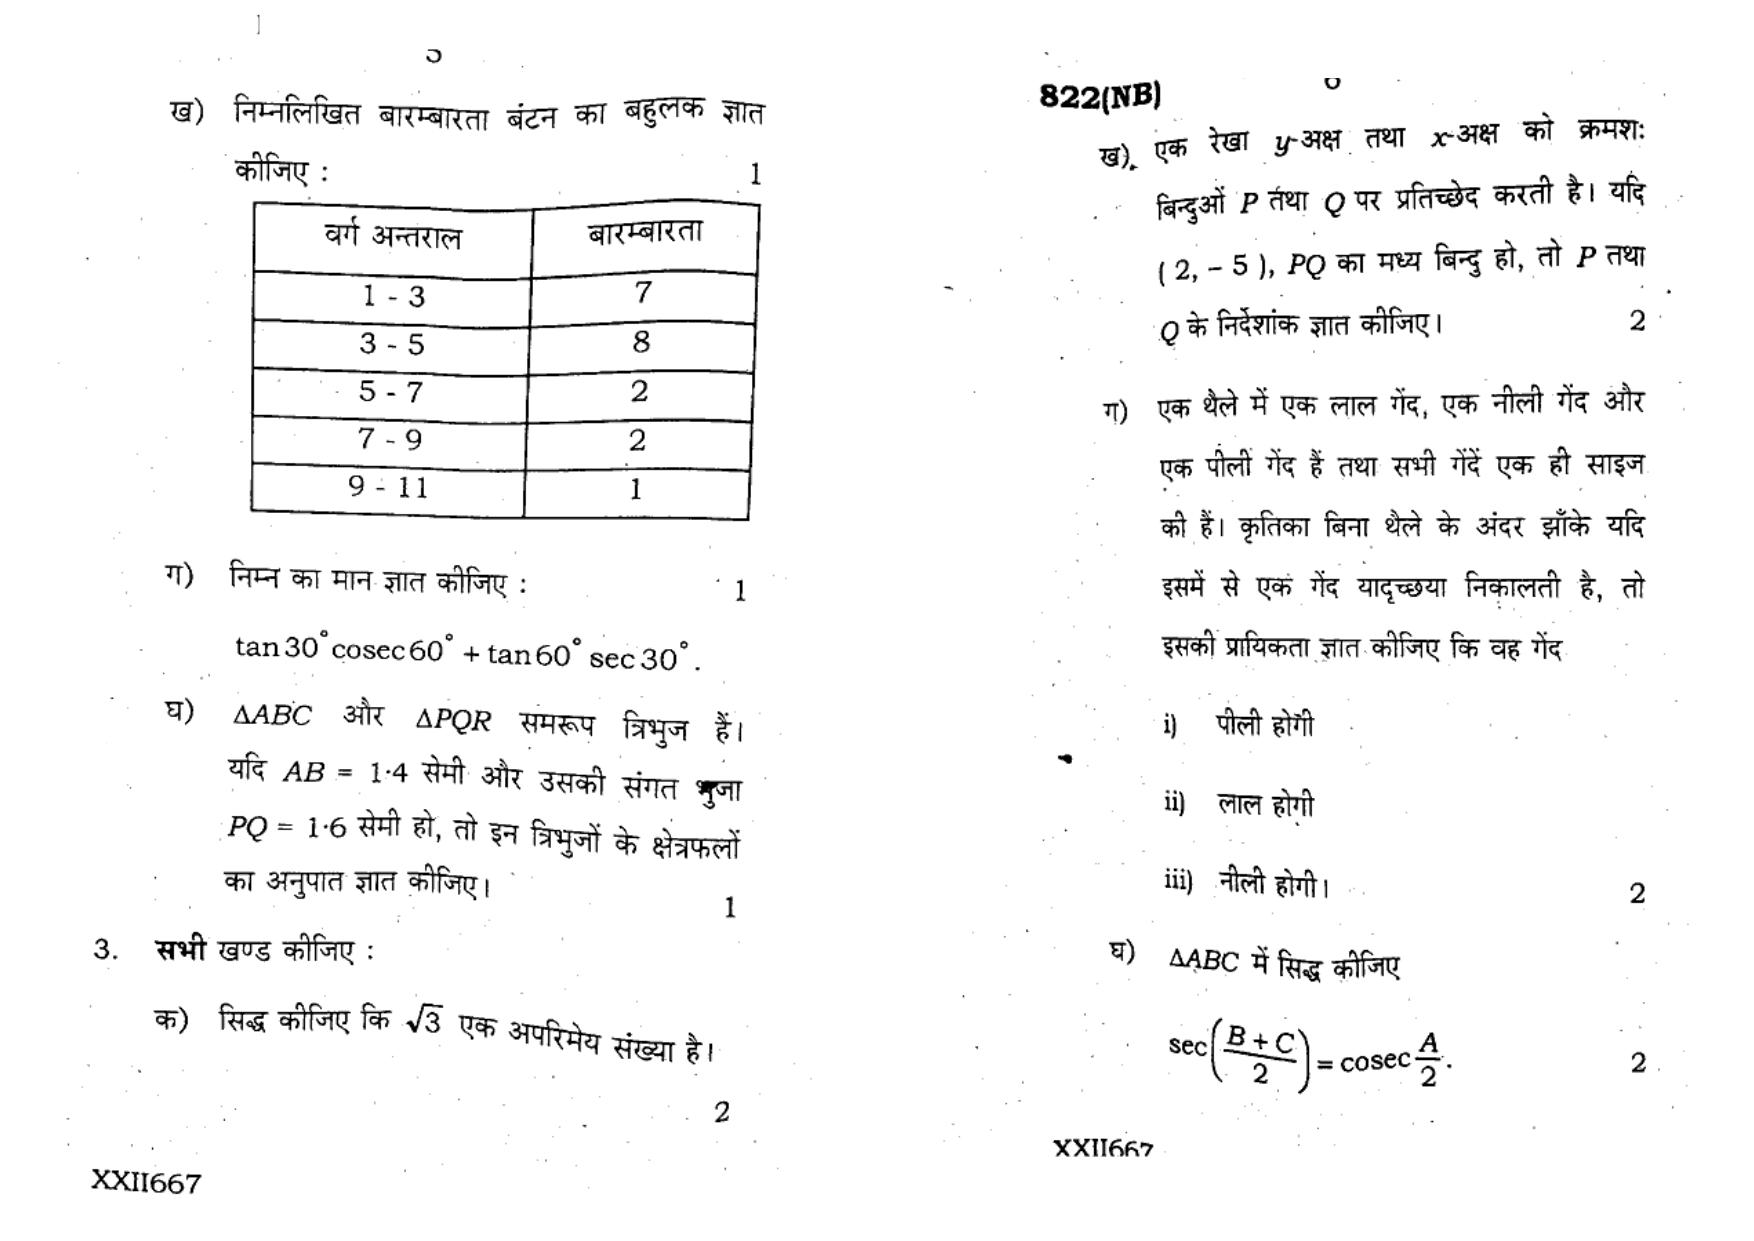 ख) निम्नलिखित बारम्बारता बंटन का बहुलक ज्ञात
कीजिए : 1
वर्ग अन्तराल बारम्बारता
1 - 3 7
3 - 5 8
5 - 7 2
7 - 9 2
9 - 11 1
ग) निम्न का मान ज्ञात कीजिए : 1
tan30°cosec60° + tan60° sec30°.
घ) ∆ABC और ∆PQR समरूप त्रिभुज हैं।
यदि AB = 1·4 सेमी और उसकी संगत भुजा
PQ = 1·6 सेमी हो, तो इन त्रिभुजों के क्षेत्रफलों
का अनुपात ज्ञात कीजिए।
1
3. सभी खण्ड कीजिए :
क) सिद्ध कीजिए कि √3 एक अपरिमेय संख्या है।
2
XXII667
822(NB)
ख) एक रेखा y-अक्ष तथा x-अक्ष को क्रमशः
बिन्दुओं P तथा Q पर प्रतिच्छेद करती है। यदि
( 2, – 5 ), PQ का मध्य बिन्दु हो, तो P तथा
Q के निर्देशांक ज्ञात कीजिए। 2
ग) एक थैले में एक लाल गेंद, एक नीली गेंद और
एक पीली गेंद हैं तथा सभी गेंदें एक ही साइज
की हैं। कृतिका बिना थैले के अंदर झाँके यदि
इसमें से एक गेंद यादृच्छया निकालती है, तो
इसकी प्रायिकता ज्ञात कीजिए कि वह गेंद
i) पीली होगी
ii) लाल होगी
iii) नीली होगी। 2
घ) ∆ABC में सिद्ध कीजिए
sec((B + C)/2) = cosec A/2. 2
XXII667